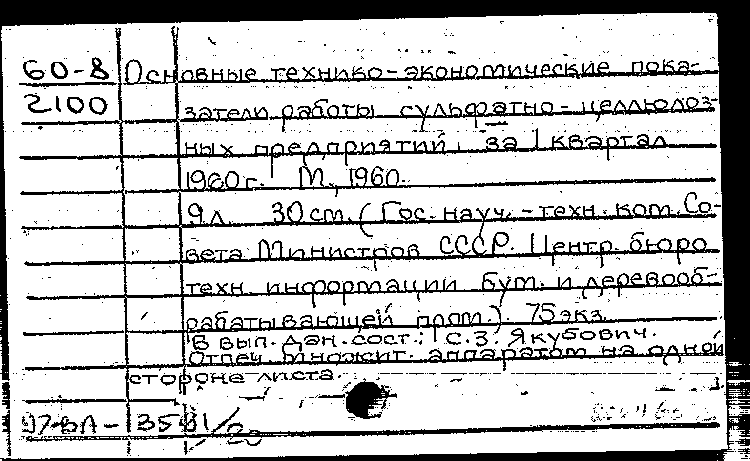 60-8 Основные технико-экономические пока-
2100 затели работы сульфатно-целлюлоз-
ных предприятий за I квартал
1960г. М., 1960.
9л. 30см. (Гос. науч.-техн. ком. Со-
вета Министров СССР. Центр. бюро
техн. информации бум. и деревооб-
рабатывающей пром.). 75экз.
В вып. дан. сост.: С.З. Якубович.
Отпеч. множит. аппаратом на одной
стороне листа.
97-ВЛ-